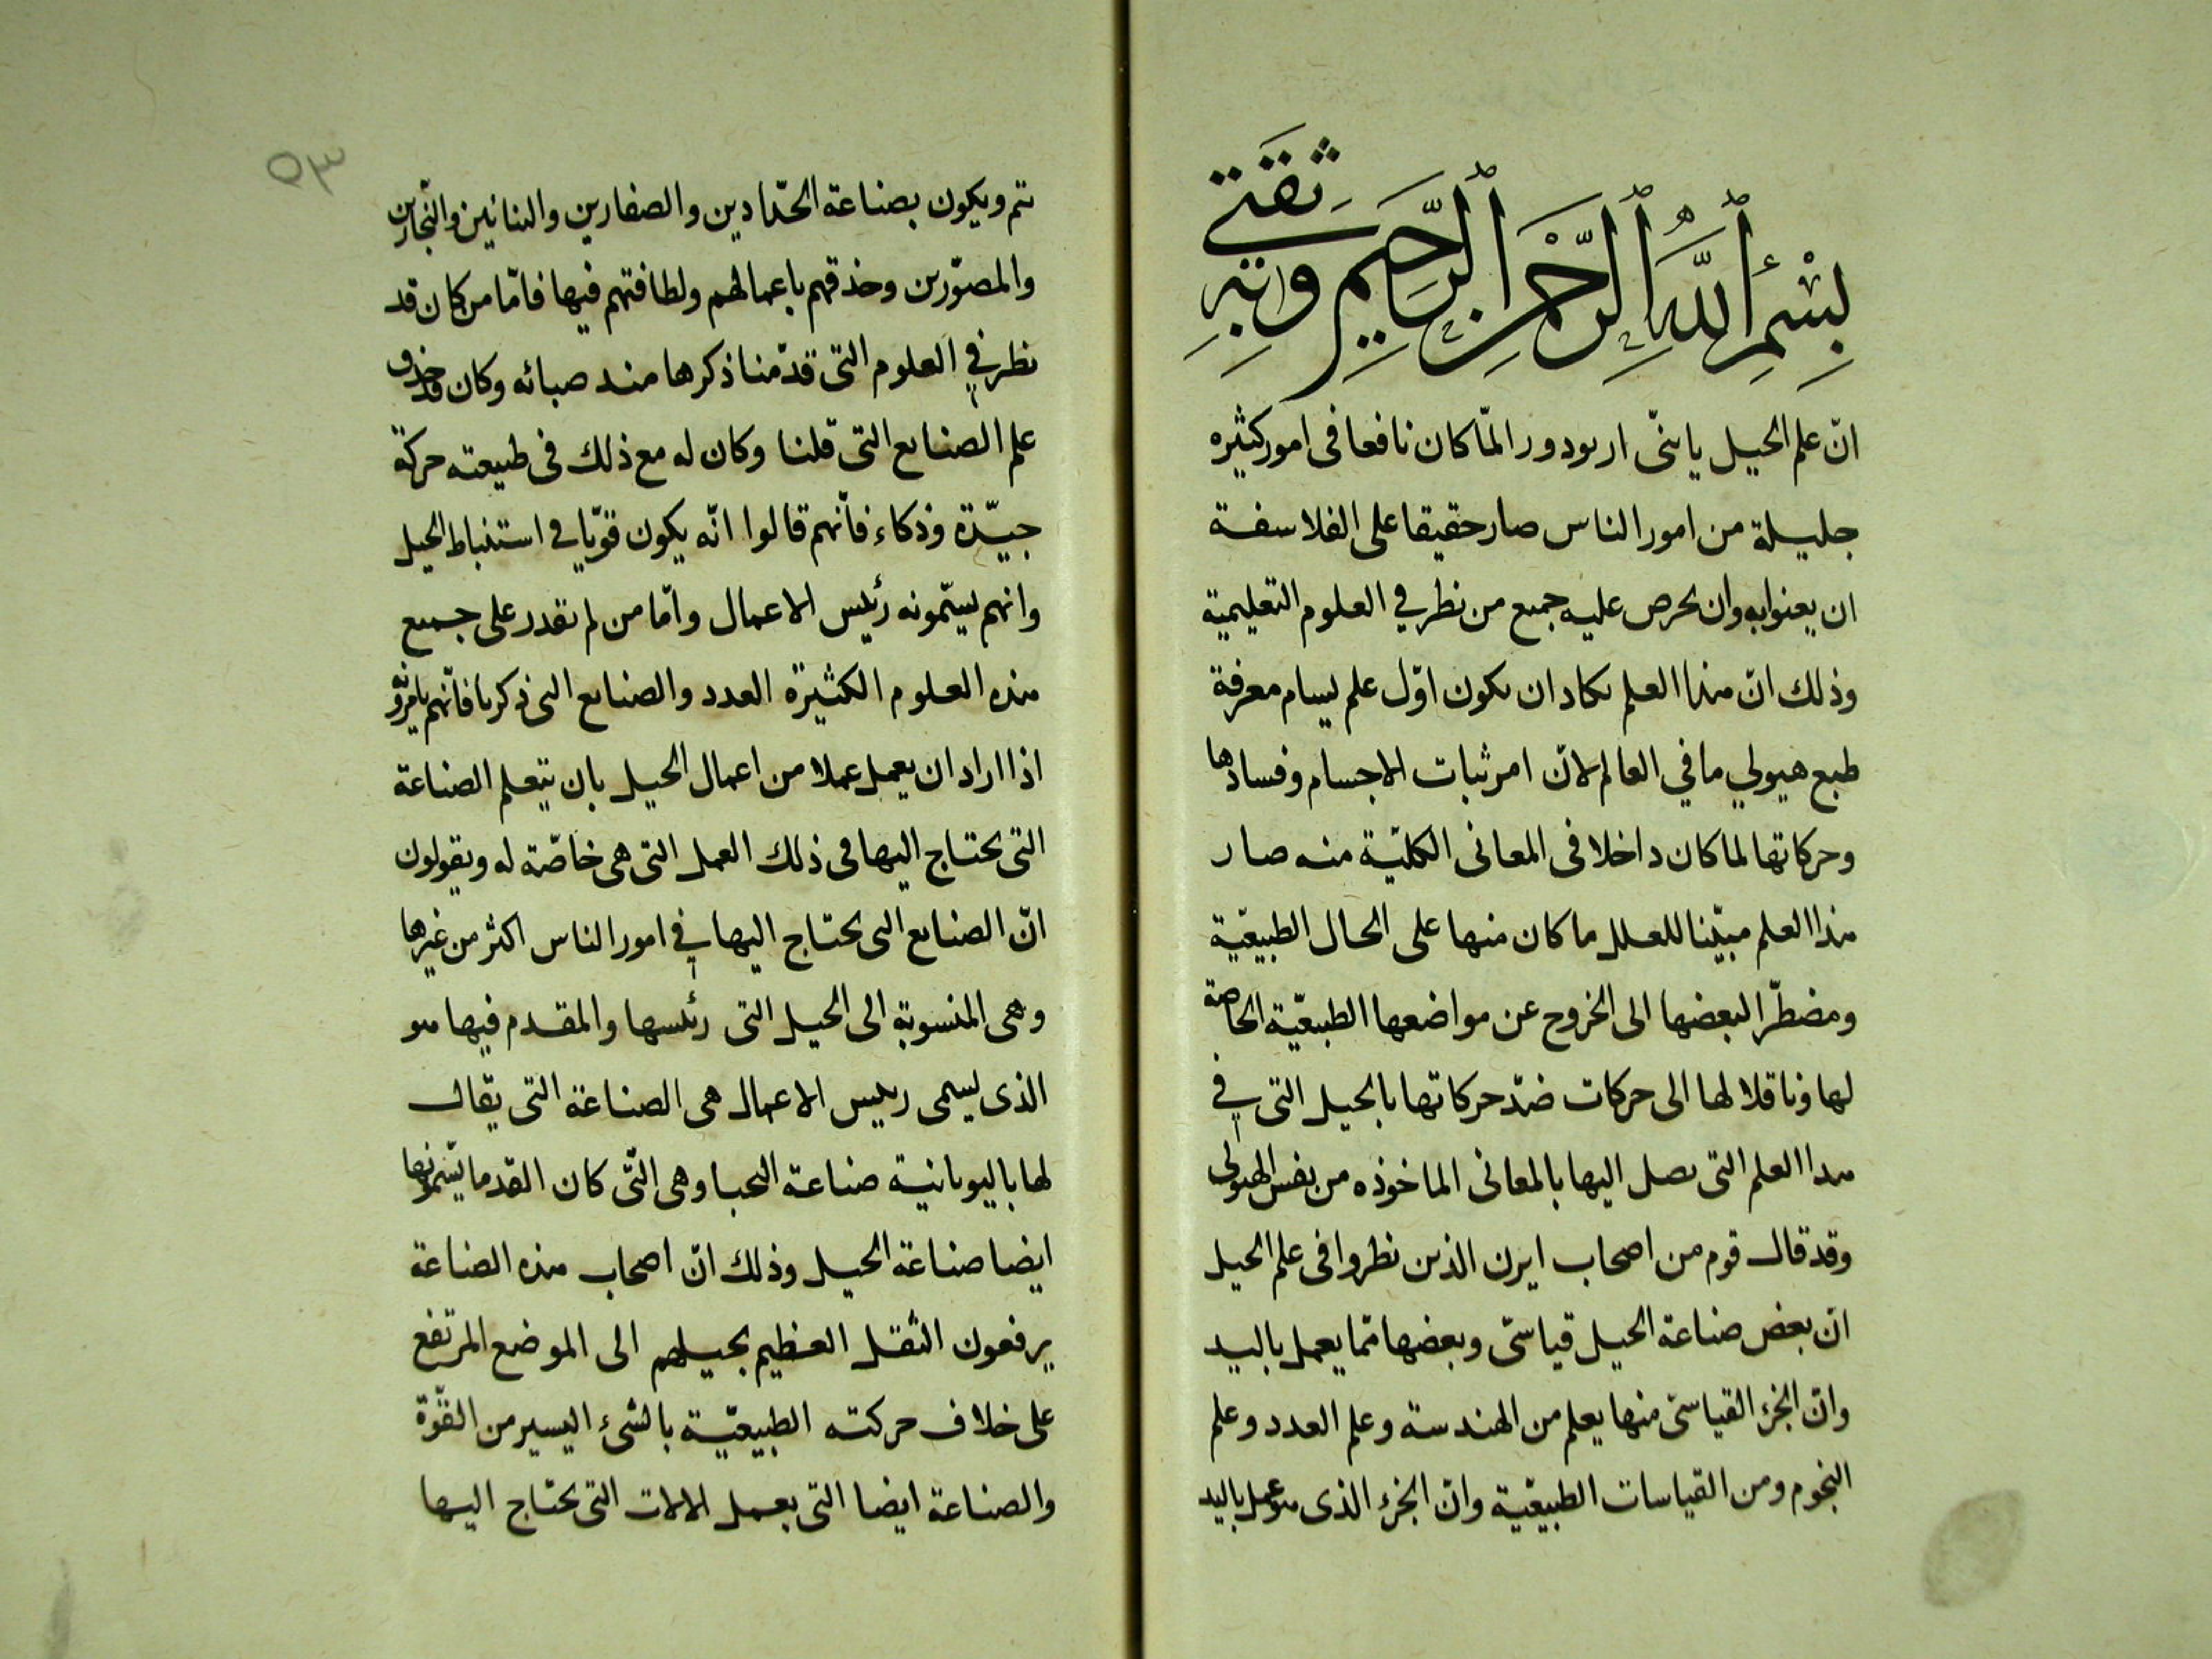 بِسْمِ ٱللَّهِ ٱلرَّحْمٰنِ ٱلرَّحِيمِ وَبِهِ ثِقَتِي
انّ علم الحيل يا بنىّ اربودورا لمّا كان نافعا فى امور كثيره
جليلة من امور الناس صار حقيقا على الفلاسفة
ان يعنوا به وان يحرص عليه جميع من نظر في العلوم التعليمية
وذلك انّ هذا العلم يكاد ان يكون اوّل علم يسام معرفة
طبع هيولي ما في العالم لانّ امر ثبات الاجسام وفسادها
وحركاتها لما كان داخلا فى المعانى الكليّة منه صار
هذا العلم مبيّنا للعلل ما كان منها على الحال الطبيعيّة
ومضطرّا لبعضها الى الخروج عن مواضعها الطبيعيّة الخاصة
لها وناقلا لها الى حركات ضدّ حركاتها بالحيل التى في
هذا العلم التى يصل اليها بالمعانى الماخوذه من نفس الهيولى
وقد قال قوم من اصحاب ايرن الذين نظروا فى علم الحيل
انّ بعض صناعة الحيل قياسىّ وبعضها ممّا يعمل باليد
وانّ الجزء القياسىّ منها يعلم من الهندسة وعلم العدد وعلم
النجوم ومن القياسات الطبيعيّة وانّ الجزء الذى هو عمل باليد
تتم ويكون بصناعة الحدّادين والصفارين والبنائين والنجّارين
والمصوّرين وحذقهم باعمالهم ولطافتهم فيها فامّا من كان قد
نظر في العلوم التى قدّمنا ذكرها منذ صبائه وكان قد حذق
علم الصنايع التى قلنا وكان له مع ذلك فى طبيعته حركة
جيّدة وذكاء فانّهم قالوا انّه يكون قويّا في استنباط الحيل
وانهم يسمّونه رئيس الاعمال وامّا من لم يقدر على جميع
هذه العلوم الكثيرة العدد والصنايع التى ذكرنا فانّهم يامرونه
اذا اراد ان يعمل عملا من اعمال الحيل بان يتعلم الصناعة
التى يحتاج اليها فى ذلك العمل التى هى خاصّة له ويقولون
انّ الصنايع التى يحتاج اليها في امور الناس اكثر من غيرها
وهى المنسوبة الى الحيل التى رئسها والمقدم فيها هو
الذى يسمى رييس الاعمال هى الصناعة التى يقال
لها باليونانية صناعة وهى الّتى كان القدما يسمّونها
ايضا صناعة الحيل وذلك انّ اصحاب هذه الصناعة
يرفعون الثقل العظيم بحيلهم الى الموضع المرتفع
على خلاف حركته الطبيعيّة بالشئ اليسير من القوّة
والصناعة ايضا التى بعمل الالات التى يحتاج اليها
٥٣